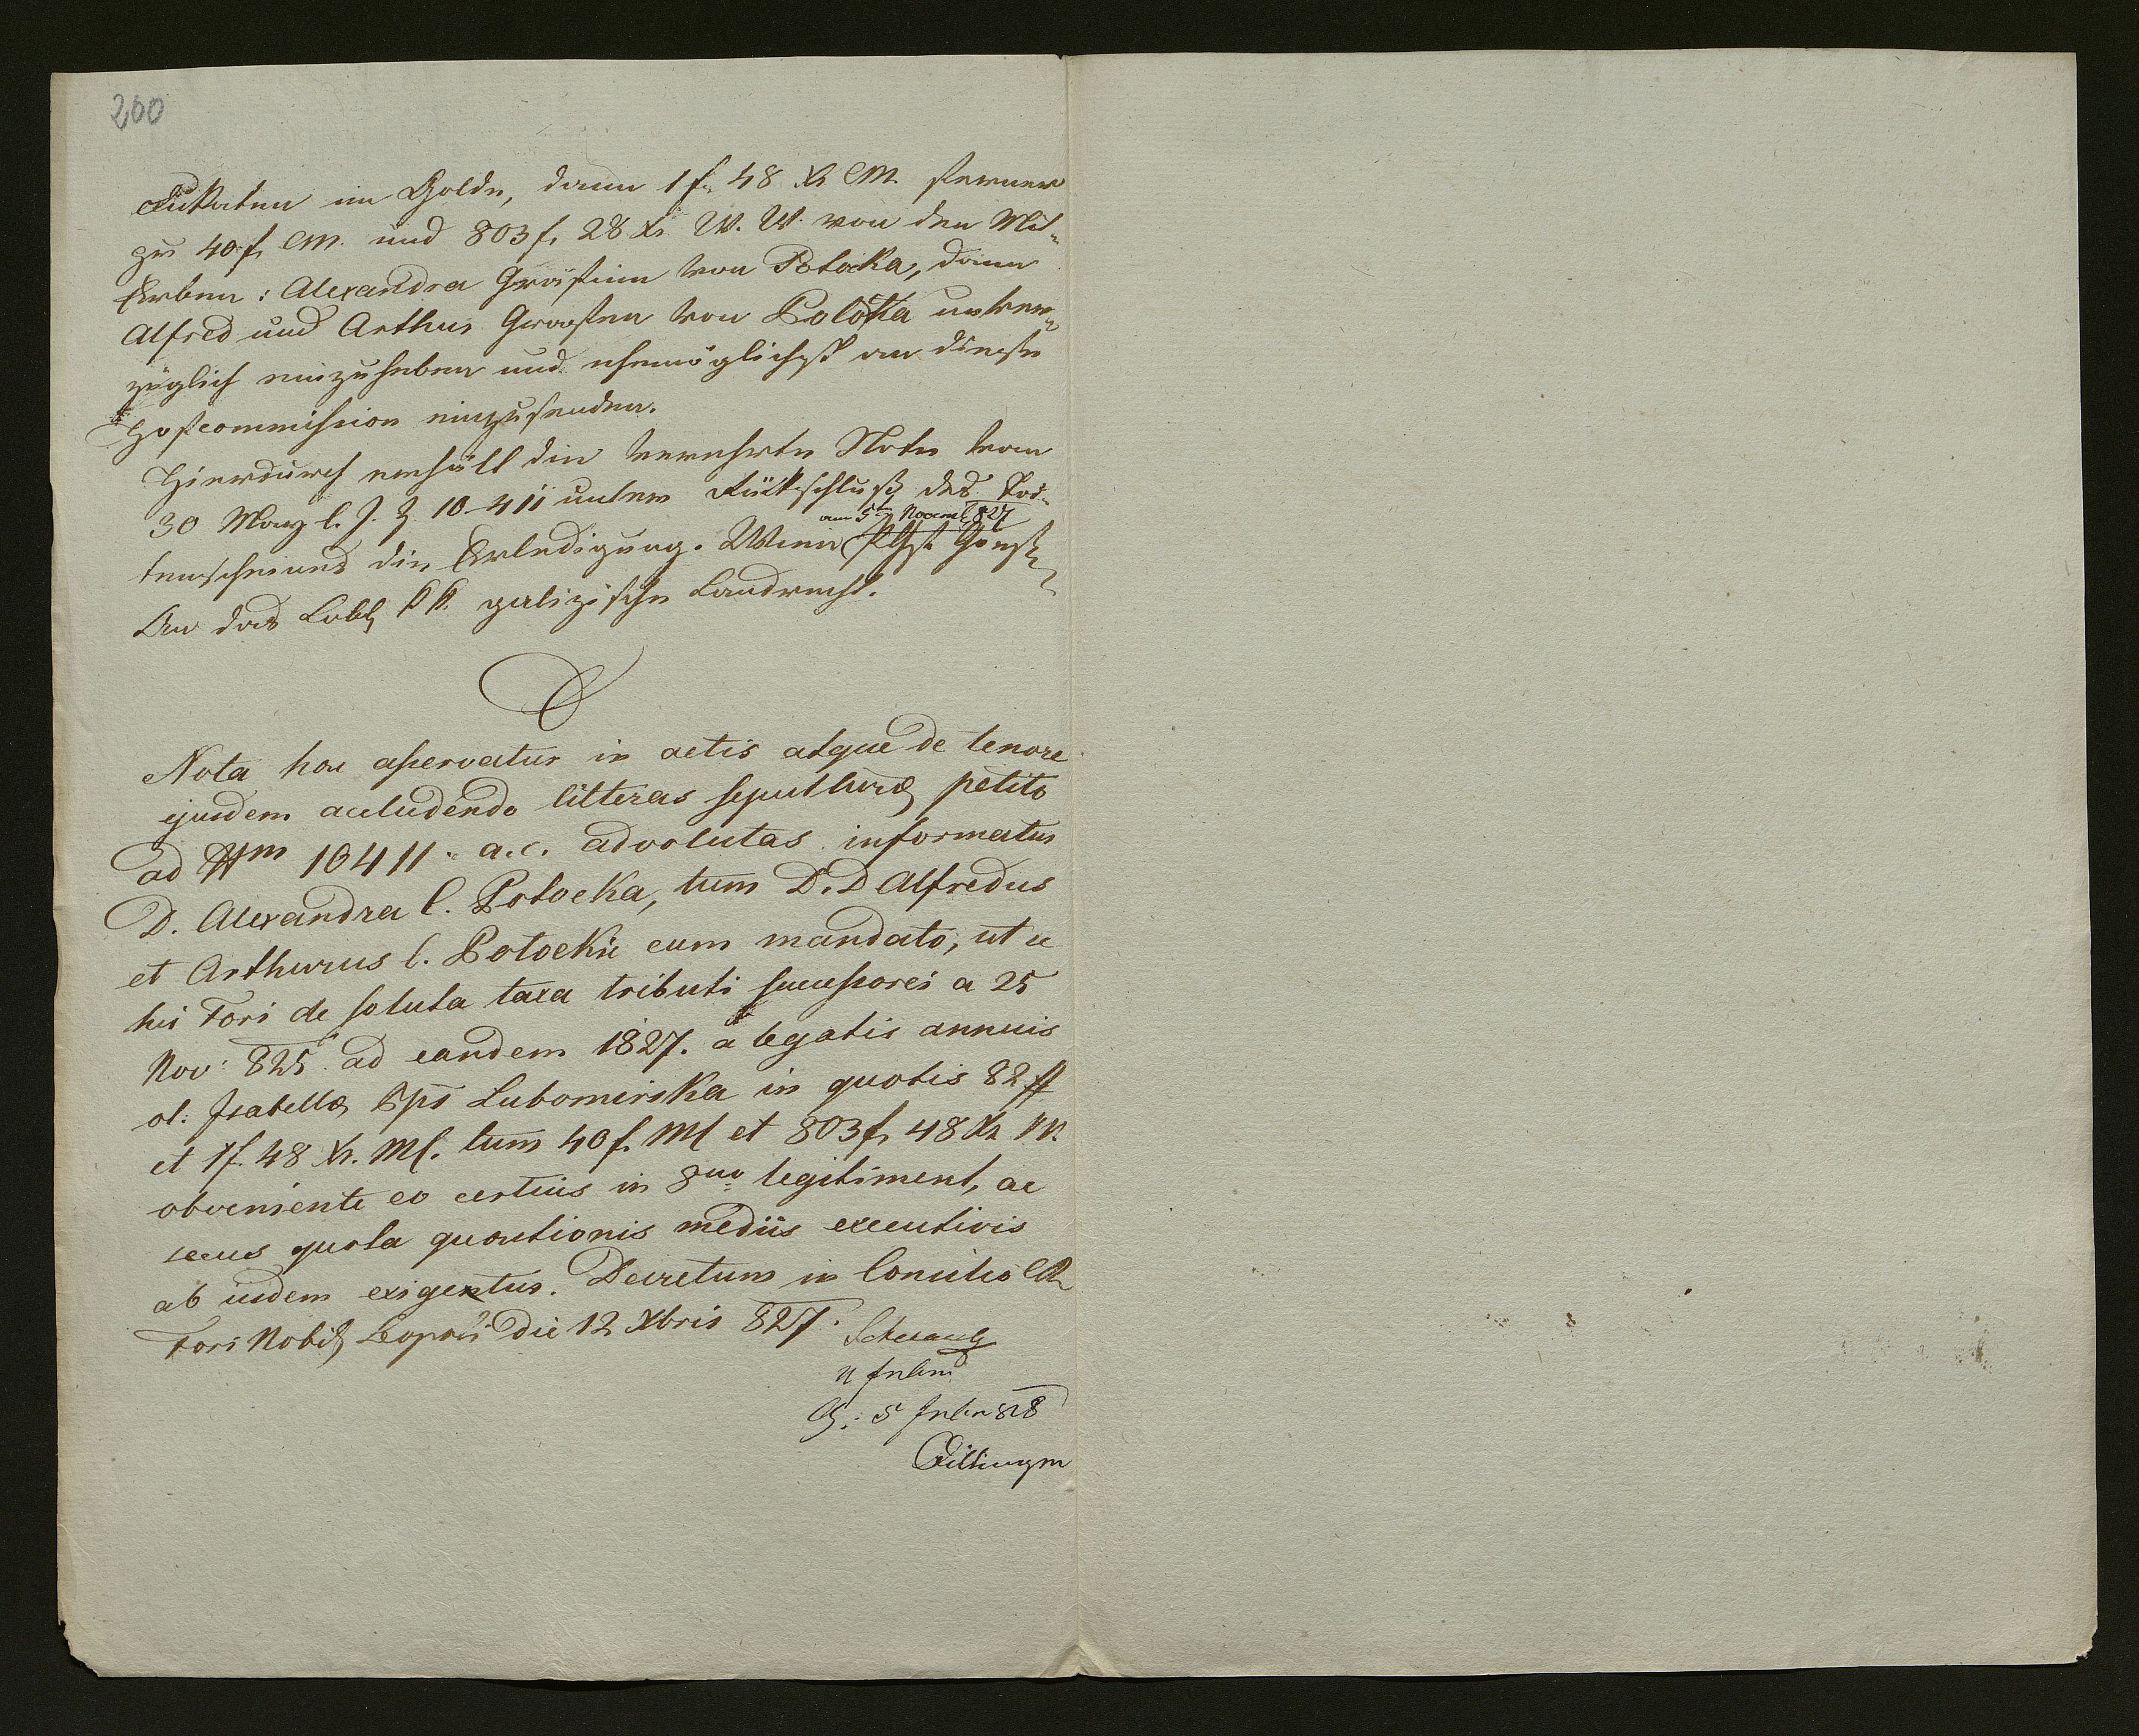 200
Dukaten im Golde, dann 1 f. 48 Xr CM. ferner
zu 40 f. CM. und 803 f. 28 Xr W. W. von den Mit-
Erben: Alexandra Gräfinn von Potocka, dann
Alfred und Arthur Grafen von Potocka unver-
züglich einzuheben und ehemöglichst an diese
Hofcommission einzusenden.
Hierdurch erhält die verehrte Note vom
30 May l. J. Z. 10411 unter Rückschluß des Tod-
am 5ten Novemb 827
tenscheines die Erledigung. Wien
An das Löbl k k. galizische Landrecht.
Nota hoc asservatur in actis atque de tenore
ejusdem accludendo litteras sepulturæ petito
ad Nm 10411 a.c. advolutas informatur
D. Alexandra C. Potocka, tum D. D Alfredus
et Arthurus C. Potockie cum mandato, ut se
hic Fori de soluta taxa tributi successorei a 25
Nov: 825 ad eandem 1827. a legatis annuis
ol: Isabellæ Lubomirska in quotis 82 #
et 1 f. 48 Xr. MC. tum 40 f. MC et 803 f. 48 Xr
obveniente eo certius in 8 legitiment, ac
secus quota quaestionis mediis executivis
ab iisdem exigentur. Decretum in Consilio CR
Fori Nobil Leopoli Die 12 Xbris 827.
5 828